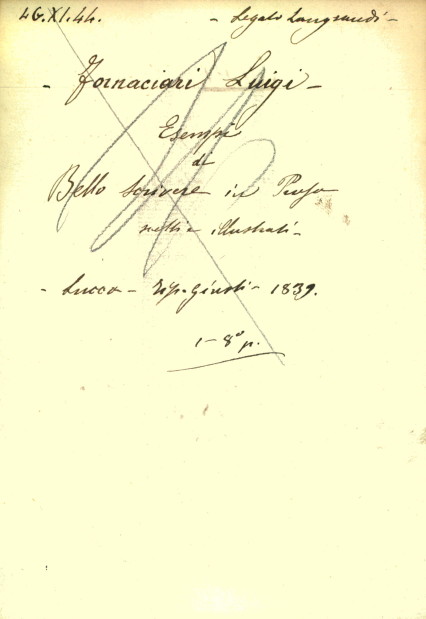 4G.XI.44. - Legato Langraudi -
- Fornaciari Luigi -
Esempi
di
Bello scrivere in Prosa
scelti e illustrati -
- Lucca - Tip. Giusti - 1839.
1 - 8º p.